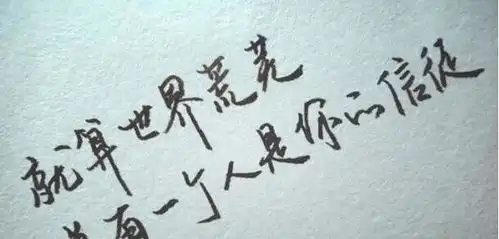 就算世界荒芜
总有一个人是你的信徒